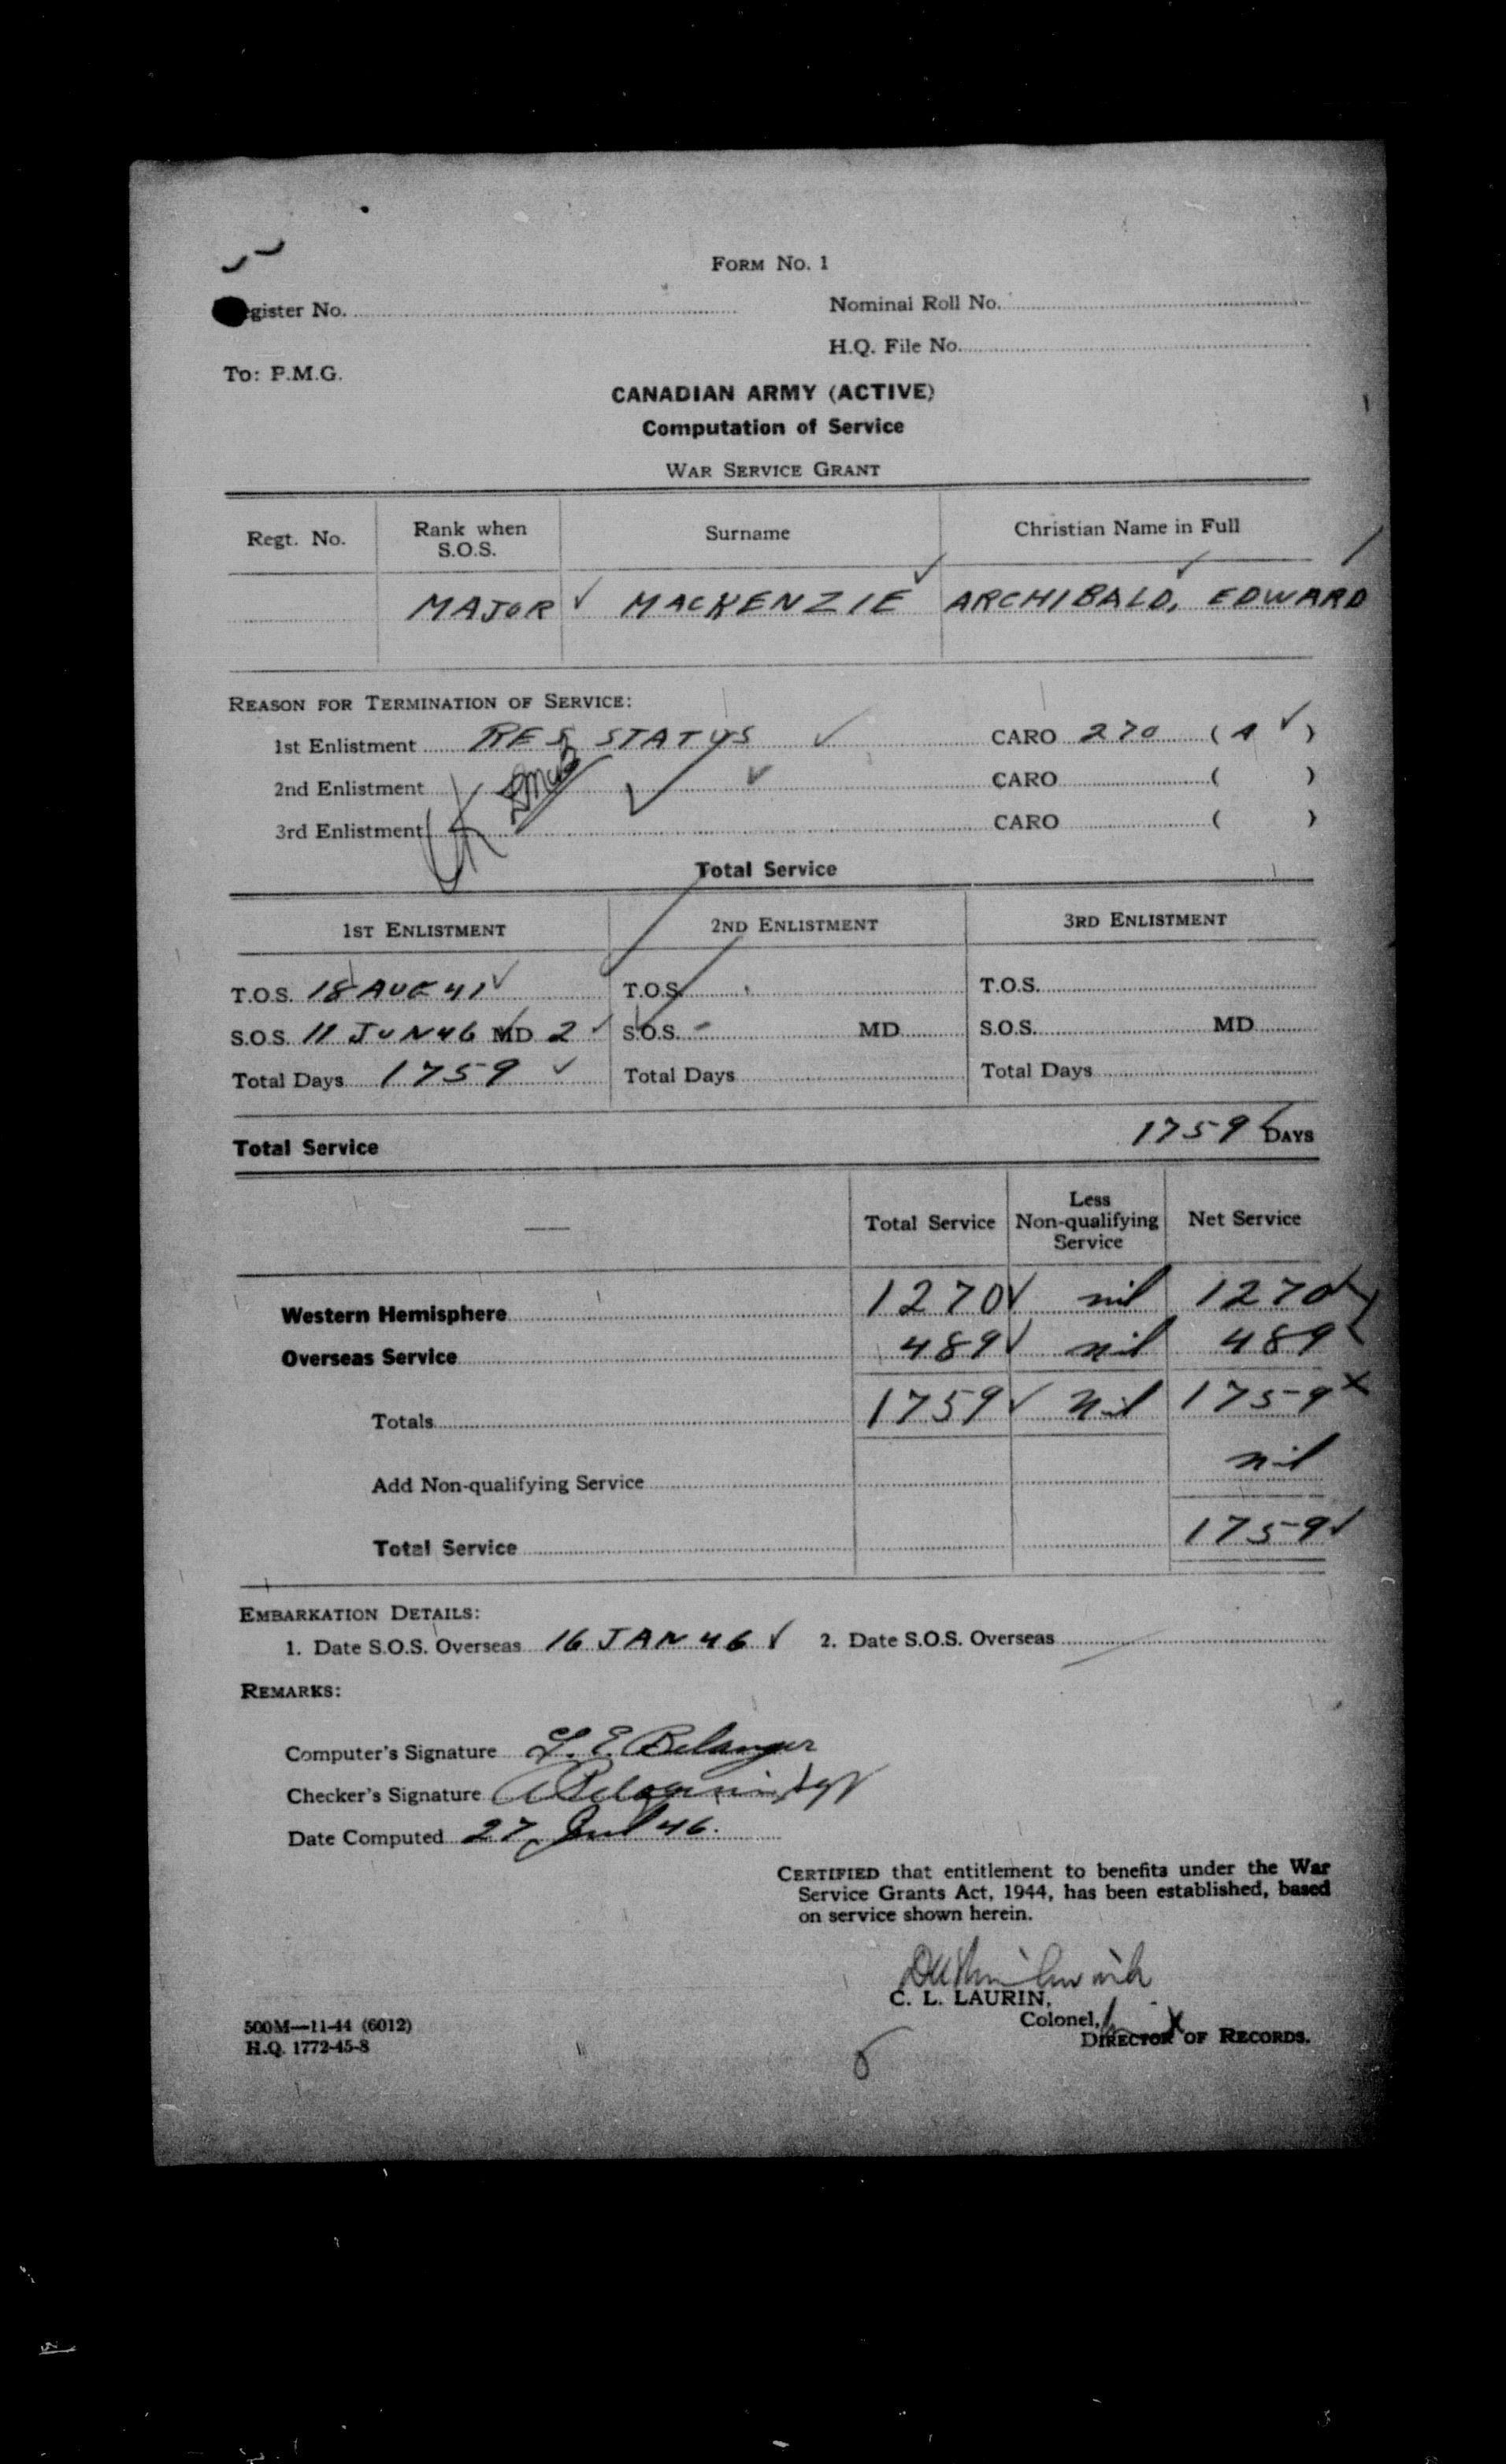 FORM No. 1
egister No.
Nominal Roll No.
H.Q. File No.
To: P.M.G.
CANADIAN ARMY (ACTIVE)
Computation of Service
WAR SERVICE GRANT
Regt. No. Rank when S.O.S. Surname Christian Name in Full
MAJOR MACKENZIE ARCHIBALD, EDWARD
REASON FOR TERMINATION OF SERVICE:
1st Enlistment RES STATUS CARO 270 ( A )
2nd Enlistment CARO ( )
3rd Enlistment CARO ( )
Total Service
1ST ENLISTMENT 2ND ENLISTMENT 3RD ENLISTMENT
T.O.S. 18 AUG 41 T.O.S. T.O.S.
S.O.S. 11 JUN 46 MD 2 S.O.S. - MD S.O.S. MD
Total Days 1759 Total Days Total Days
Total Service 1759 DAYS
Total Service Less Non-qualifying Service Net Service
Western Hemisphere 1270 nil 1270
Overseas Service 489 nil 489
Totals 1759 nil 1759
Add Non-qualifying Service nil
Total Service 1759
EMBARKATION DETAILS:
1. Date S.O.S. Overseas 16 JAN 46 2. Date S.O.S. Overseas
REMARKS:
Computer's Signature L. E. Belanger
Checker's Signature
Date Computed 27 Jul 46.
CERTIFIED that entitlement to benefits under the War
Service Grants Act, 1944, has been established, based
on service shown herein.
C. L. LAURIN,
Colonel,
DIRECTOR OF RECORDS.
500M—11-44 (6012)
H.Q. 1772-45-8